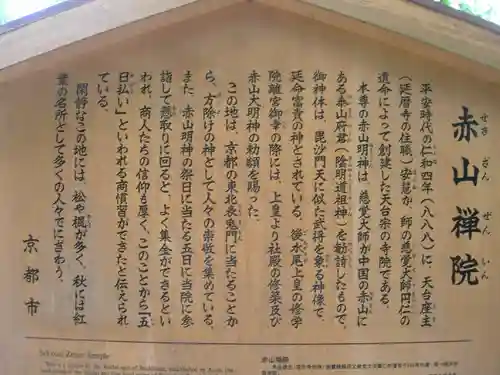 赤山禅院
せきざんぜんいん
平安時代の仁和四年（八八八）に、天台座主
（延暦寺の住職）安慧が、師の慈覚大師円仁の
遺命によって創建した天台宗の寺院である。
本尊の赤山明神は、慈覚大師が中国の赤山に
ある泰山府君（陰陽道祖神）を勧請したもので、
御神体は、毘沙門天に似た武将を象る神像で、
延命富貴の神とされている。後水尾上皇の修学
院離宮御幸の際には、上皇より社殿の修築及び
赤山大明神の勅額を賜った。
この地は、京都の東北表鬼門に当たることか
ら、方除けの神として人々の崇敬を集めている。
また、赤山明神の祭日に当たる五日に当院に参
詣して懸取りに回ると、よく集金ができるとい
われ、商人たちの信仰も厚く、このことから「五
日払い」といわれる商慣習ができたと伝えられ
ている。
閑静なこの地には、松や楓が多く、秋には紅
葉の名所として多くの人々でにぎわう。
京都市
Sekizan Zenin Temple
赤山禅院